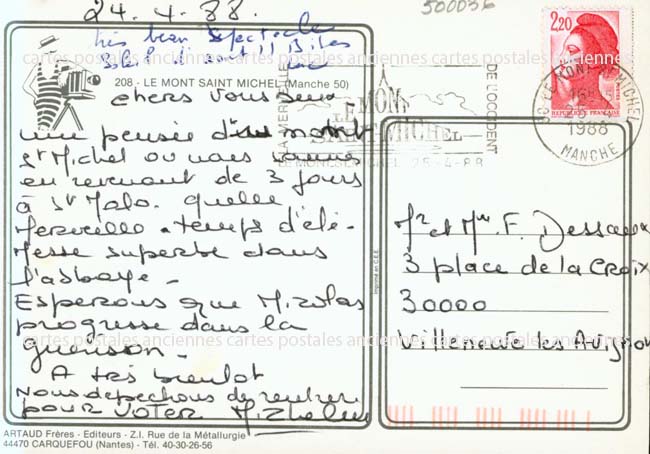 24.4.88.
500036
très beau spectacle
208 - LE MONT SAINT MICHEL (Manche 50)
chers vous deux
une pensée du mont
St Michel où nous sommes
en revenant de 3 jours
à St Malo. quelle
merveille - temps d'été -
messe superbe dans
l'abbaye -
Espérons que Nicolas
progresse dans la
guérison -
A très bientôt
Nous dépêchons de rentrer
pour VOTER
ARTAUD Frères - Editeurs - Z.I. Rue de la Métallurgie
44470 CARQUEFOU (Nantes) - Tél. 40-30-26-56
Imprimé en C.E.E.
LA MERVEILLE
DE L'OCCIDENT
LE MONT
SAINT MICHEL
LE MONT ST MICHEL 25-4-88
2,20
REPUBLIQUE FRANÇAISE
LE MONT ST MICHEL
16H
1988
MANCHE
Mr et Mme F. Dessaux
3 place de la Croix
30000
Villeneuve les Avignon
cartes postales anciennes cartes postales anciennes cartes postales anciennes
cartes postales anciennes cartes postales anciennes cartes postales anciennes